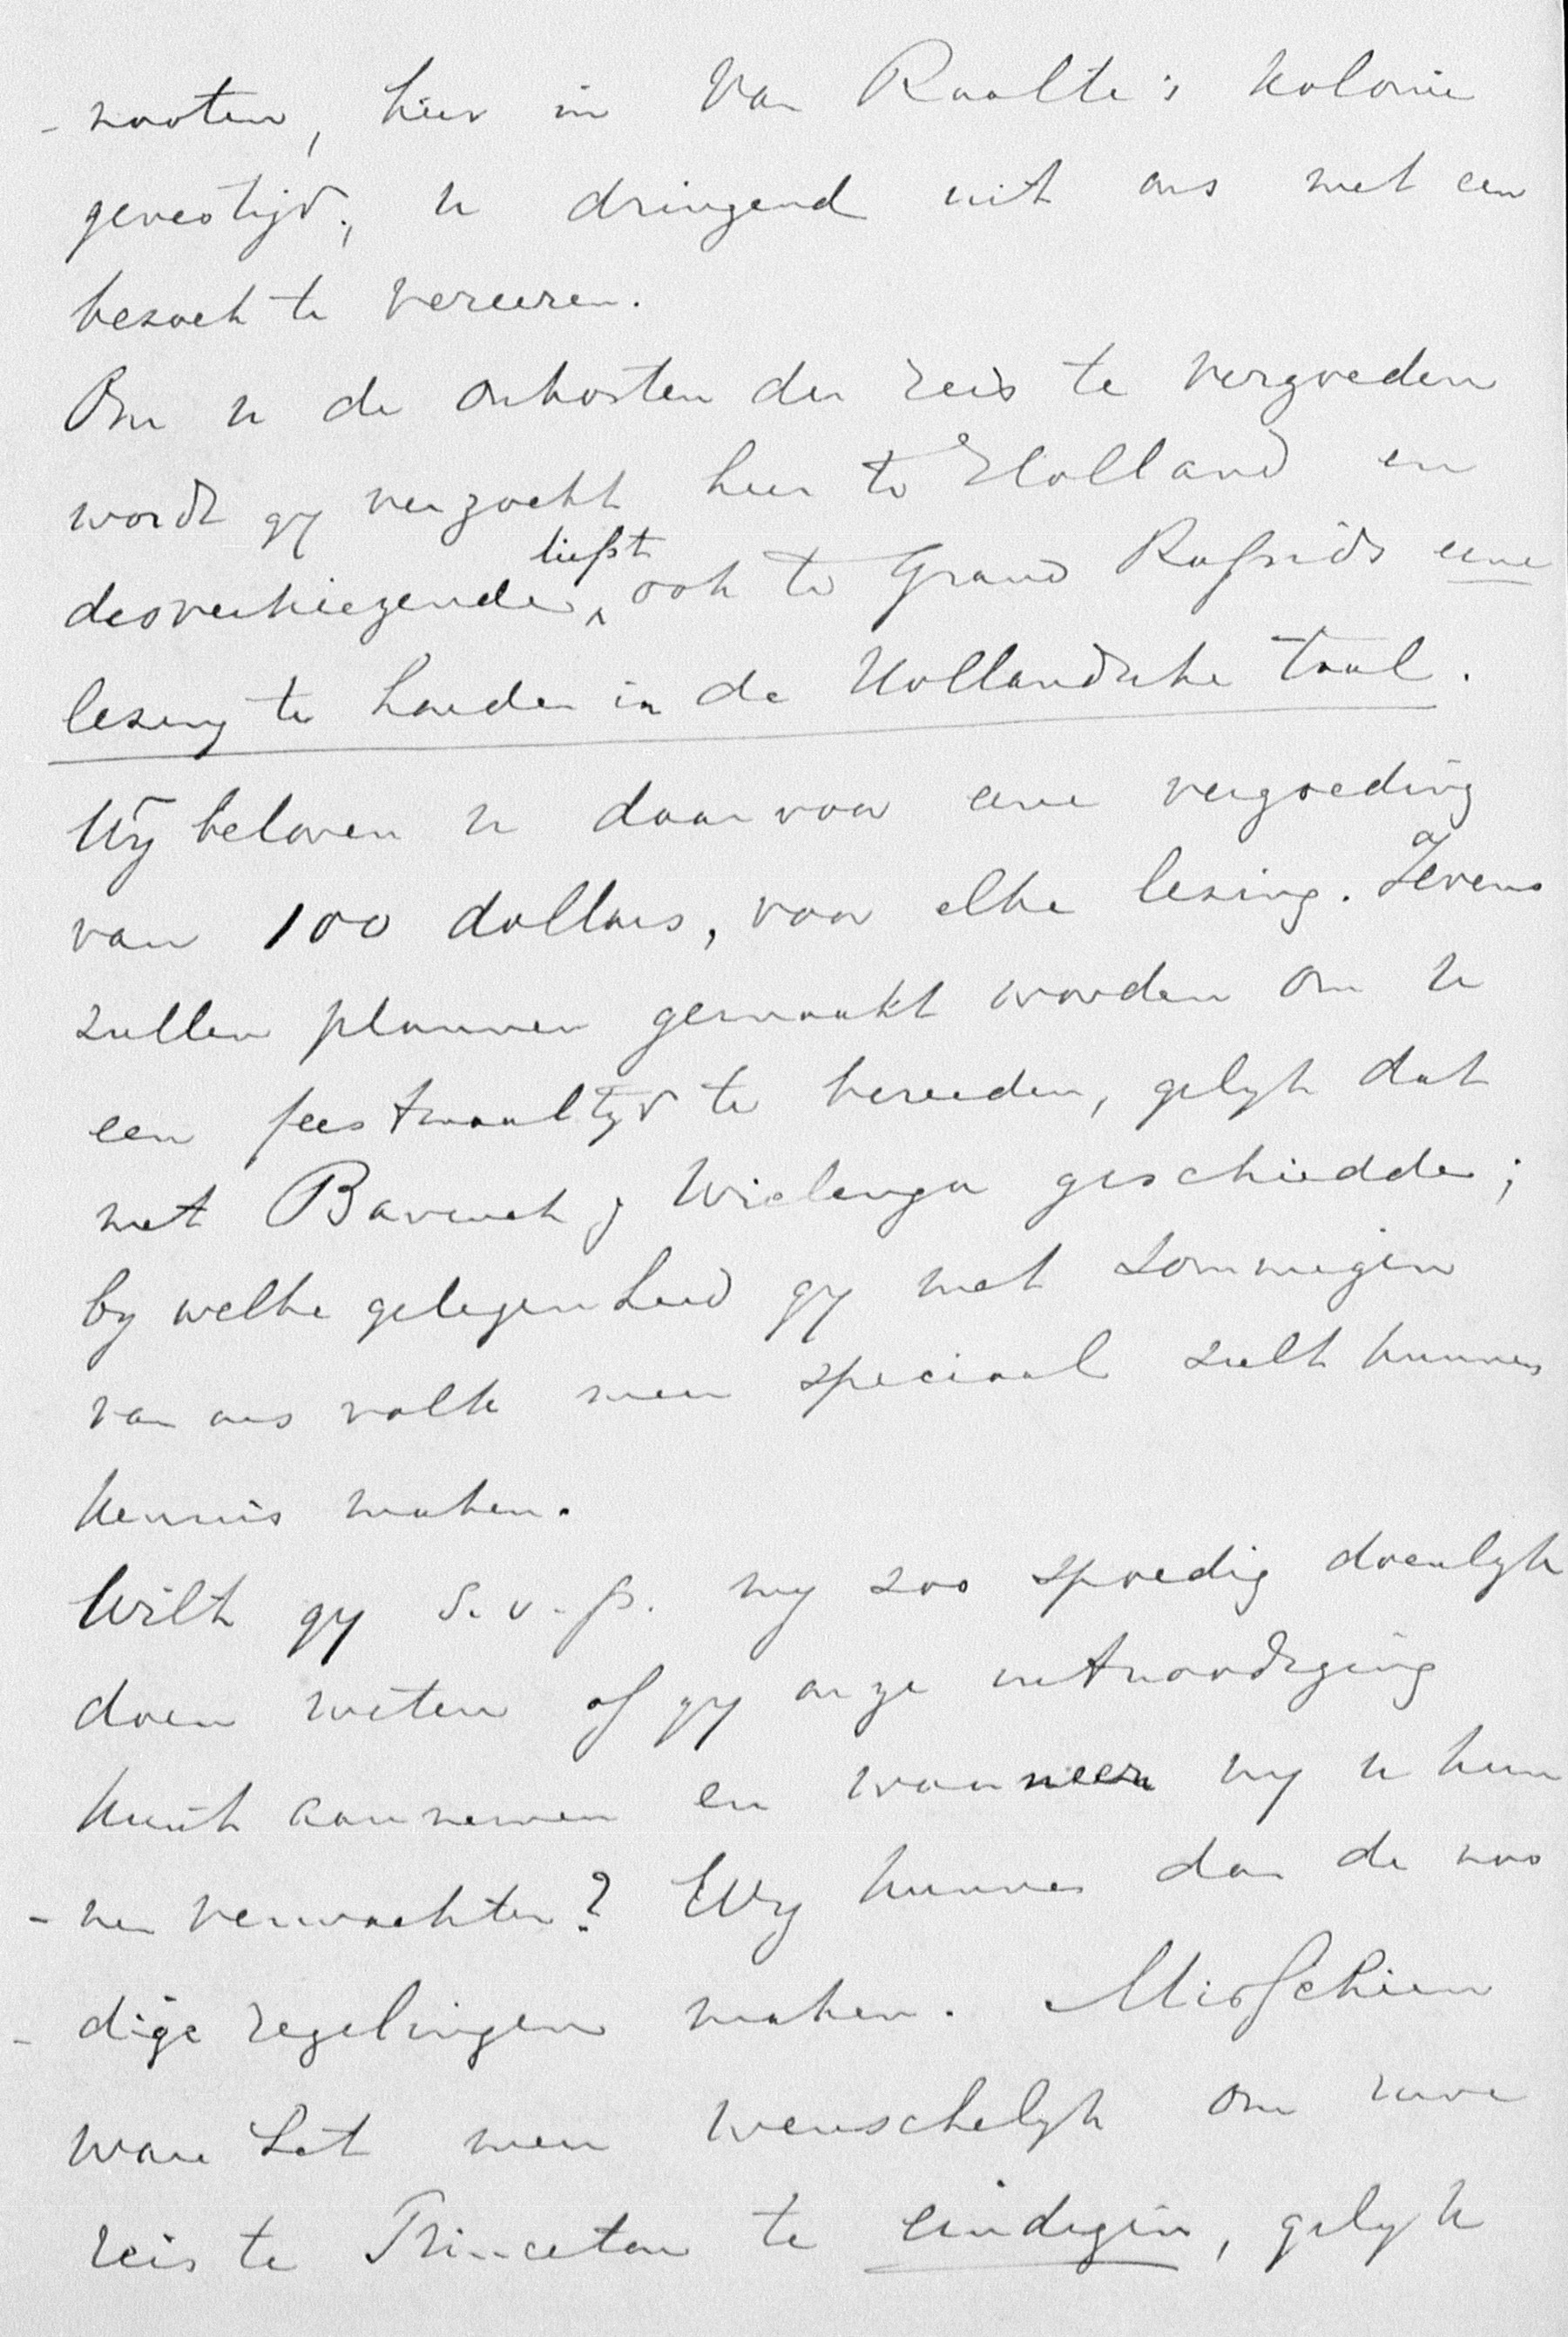 -nooten, hier in Van Raalte's Kolonie
gevestigd; u dringend uit ons met een
bezoek te vereeren.
Om u de onkosten der reis te vergoeden
wordt gy verzocht hier te Holland en
desverkiezende, liefst ook te Grand Rapids eene
lezing te houden in de Hollandsche taal.
Wy beloven u daarvoor eene vergoeding
van 100 dollars, voor elke lezing. Tevens
zullen plannen gemaakt worden om u
een feestmaaltyd te bereiden, gelyk dat
met Bavinck & Wielenga geschiedde;
by welke gelegenheid gy met sommigen
van ons volk meer speciaal zult kunnen
kennis maken.
Wilt gy s.v.p. my zoo spoedig doenlyk
doen weten of gy onze uitnoodiging
kunt aannemen en wanneer wy u kun
-nen verwachten? Wy kunnen dan de noo
-dige regelingen maken. Misschien
ware het meer wenschelyk om uwe
reis te Princeton te eindigen, gelyk